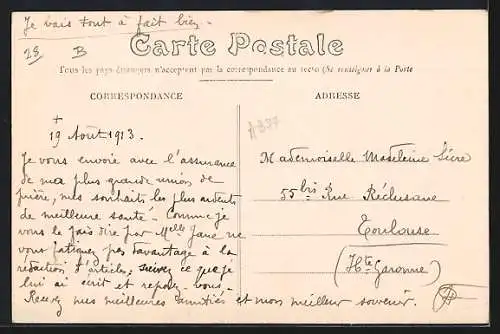 Je vais tout à fait bien -
28 B
Carte Postale
Tous les pays étrangers n'acceptent pas la correspondance au recto (Se renseigner à la Poste
CORRESPONDANCE
ADRESSE
+
19 Août 1913.
Je vous envoie avec l'assurance
de ma plus grande union de
prière, mes souhaits les plus ardents
de meilleure santé - Comme je
vous le fais dire par Melle Jane ne
vous fatiguez pas davantage à la
rédaction d'articles, suivez ce que je
lui ai écrit et reposez-vous -
Recevez mes meilleures amitiés et mon meilleur souvenir.
Mademoiselle Madeleine
55 bis Rue Réclusane
Toulouse
(Hte Garonne)